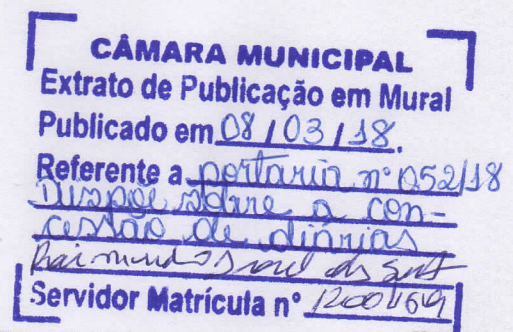 CÂMARA MUNICIPAL
Extrato de Publicação em Mural
Publicado em 08/03/18.
Referente a portaria nº 052/18
Dispõe sobre a con-
cessão de diárias
Raimundo
Servidor Matrícula nº